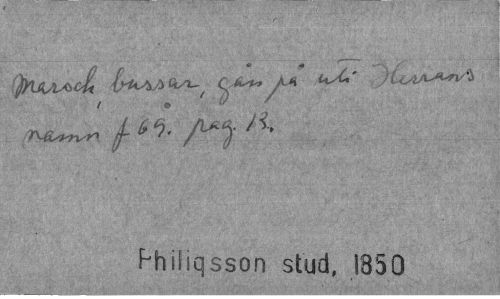 Marsch, bussar, gån på uti Herrans
namn f 69. pag. 13.
Philiqsson stud, 1850